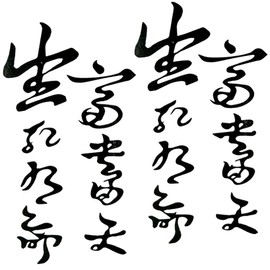 生死有命
富貴由天
生死有命
富貴由天